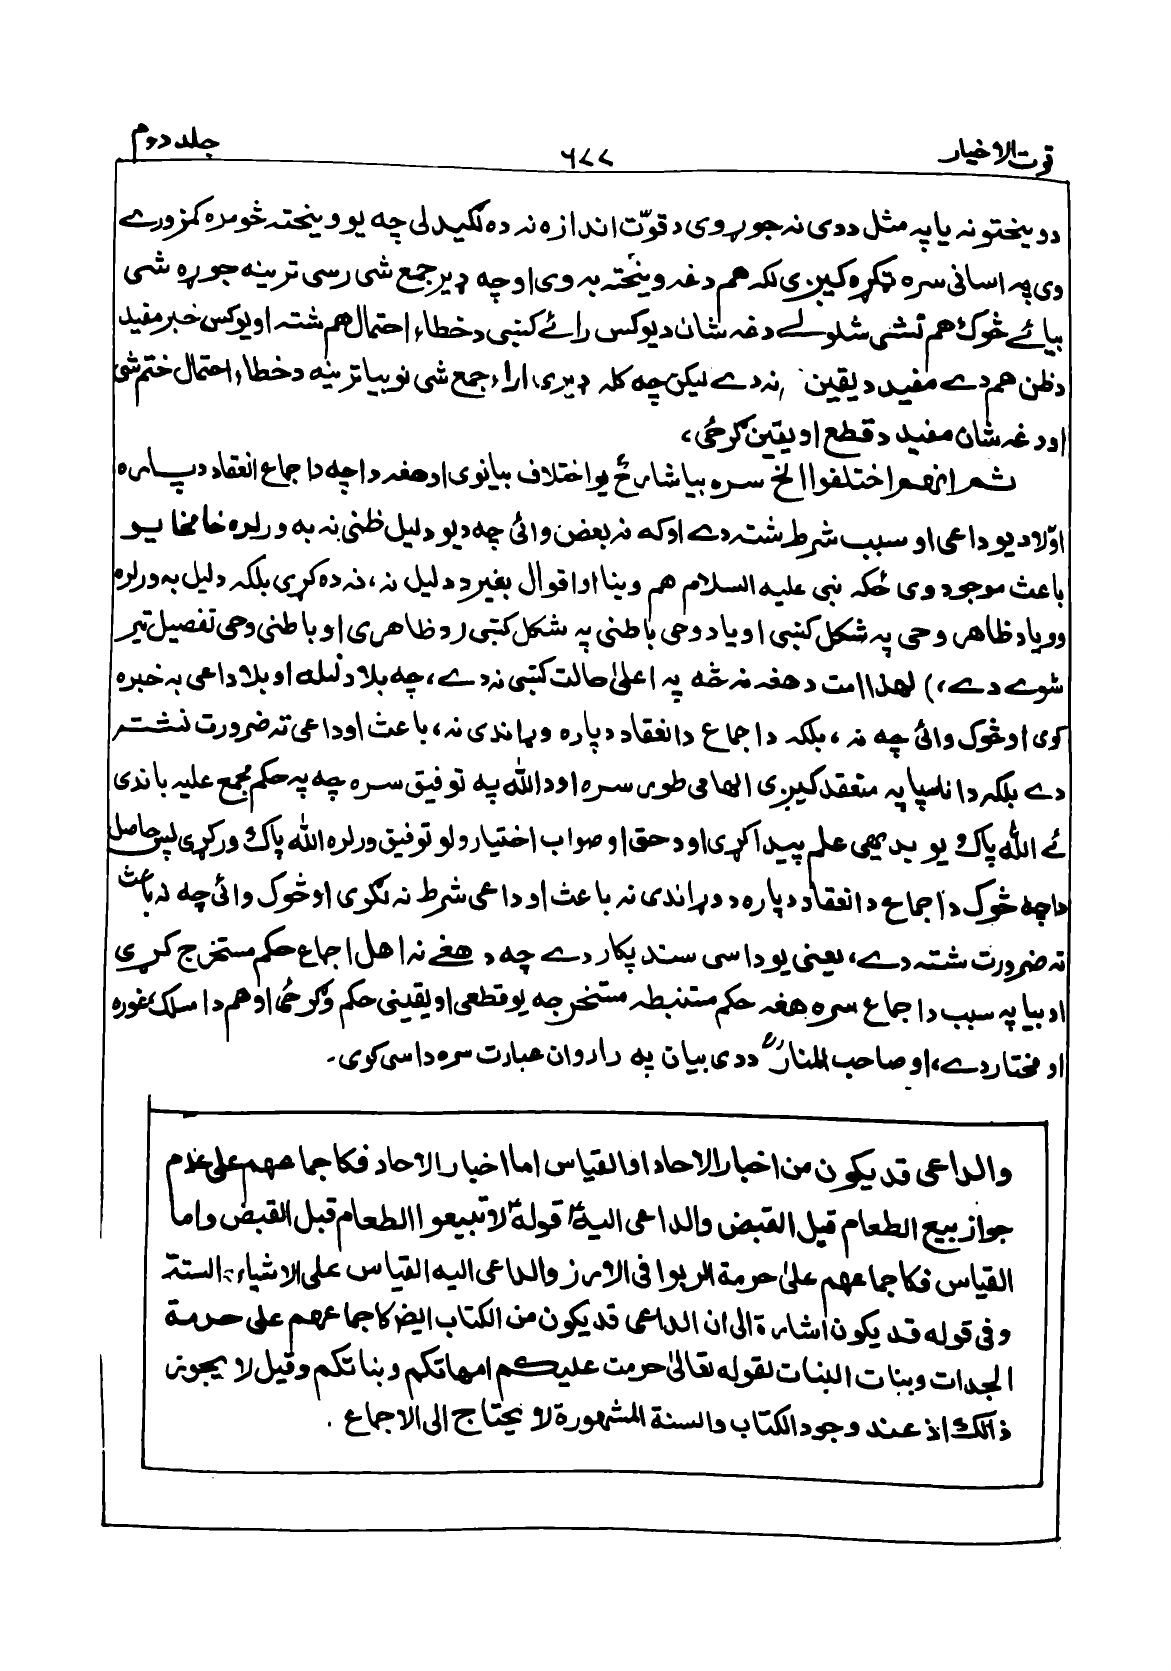 قوت الاخیار ۶۷۷ جلد دوم
دویختو نه یا په مثل ددی نه جوړوی د قوّت اندازه نه ده لګیدلی چه یو ویخته څومره کمزورے
وی په اسانی سره ټکړه کیږی لکه هم دغه ویخته به وی او چه ډیر جمع شی رسی ترینه جوړه شی
بیائے څوک هم نشی شلولے دغه شان دیوکس رائے کښی د خطاء احتمال هم شته او یوکس خبر مفید
د ظن هم دے مفید د یقین نه دے لیکن چه کله ډیری اراء جمع شی نو بیا ترینه د خطاء احتمال ختم شی
او دغه شان مفید د قطع او یقین ګرځی،
ثم انهم اختلفوا الخ سره بیا شارح یو اختلاف بیانوی او هغه دا چه د اجماع انعقاد دپاره
اوّلا دیو داعی او سبب شرط شته دے اوکه نه بعض وائی چه دیو دلیل ظنی نه به ورلره خامخا یو
باعث موجود وی ځکه نبی علیه السلام هم وینا او اقوال بغیر د دلیل نه، نه ده کړی بلکه دلیل به ورلره
وو یا د ظاهر وحی په شکل کښی او یا د وحی باطنی په شکل کښی (د ظاهری او باطنی وحی تفصیل تیر
شوے دے،) لهذا امت د هغه نه څه په اعلیٰ حالت کښی نه دے، چه بلا دلیله او بلا داعی به خبره
کوی او څوک وائی چه نه، بلکه د اجماع د انعقاد دپاره وړاندی نه، باعث او داعی ته ضرورت نشته
دے بلکه دا ناسپاپه منعقد کیږی الهامی طوری سره او د الله په توفیق سره چه په حکم مجمع علیه باندی
ئے الله پاک یو بدیهی علم پیدا کړی او د حق او صواب اختیارولو توفیق ورلره الله پاک ورکړی پس حاصل
دا چه څوک د اجماع د انعقاد دپاره د وړاندی نه باعث او داعی شرط نه ګڼی او څوک وائی چه نه باعث
ته ضرورت شته دے، یعنی یو داسی سند پکار دے چه د هغے نه اهل اجماع حکم مستخرج کړی
او بیا په سبب د اجماع سره هغه حکم مستنبطه مستخرجه یو قطعی او یقینی حکم وګرځی او هم دا مسلک غوره
او مختار دے، او صاحب المنارؒ ددی بیان په راروان عبارت سره داسی کوی۔
والداعی قد یکون من اخبار الاحاد او القیاس اما اخبار الاحاد فکاجماعهم علی عدم
جواز بیع الطعام قبل القبض والداعی الیه قوله لا تبیعوا الطعام قبل القبض واما
القیاس فکاجماعهم علیٰ حرمة الربوا فی الارز والداعی الیه القیاس علی الاشیاء الستة
وفی قوله قد یکون اشارة الی ان الداعی قد یکون من الکتاب ایضا کاجماعهم علی حرمة
الجدات وبنات البنات لقوله تعالیٰ حرمت علیکم امهاتکم وبناتکم وقیل لا یجوز
ذالک اذ عند وجود الکتاب والسنة المشهورة لا یحتاج الی الاجماع .